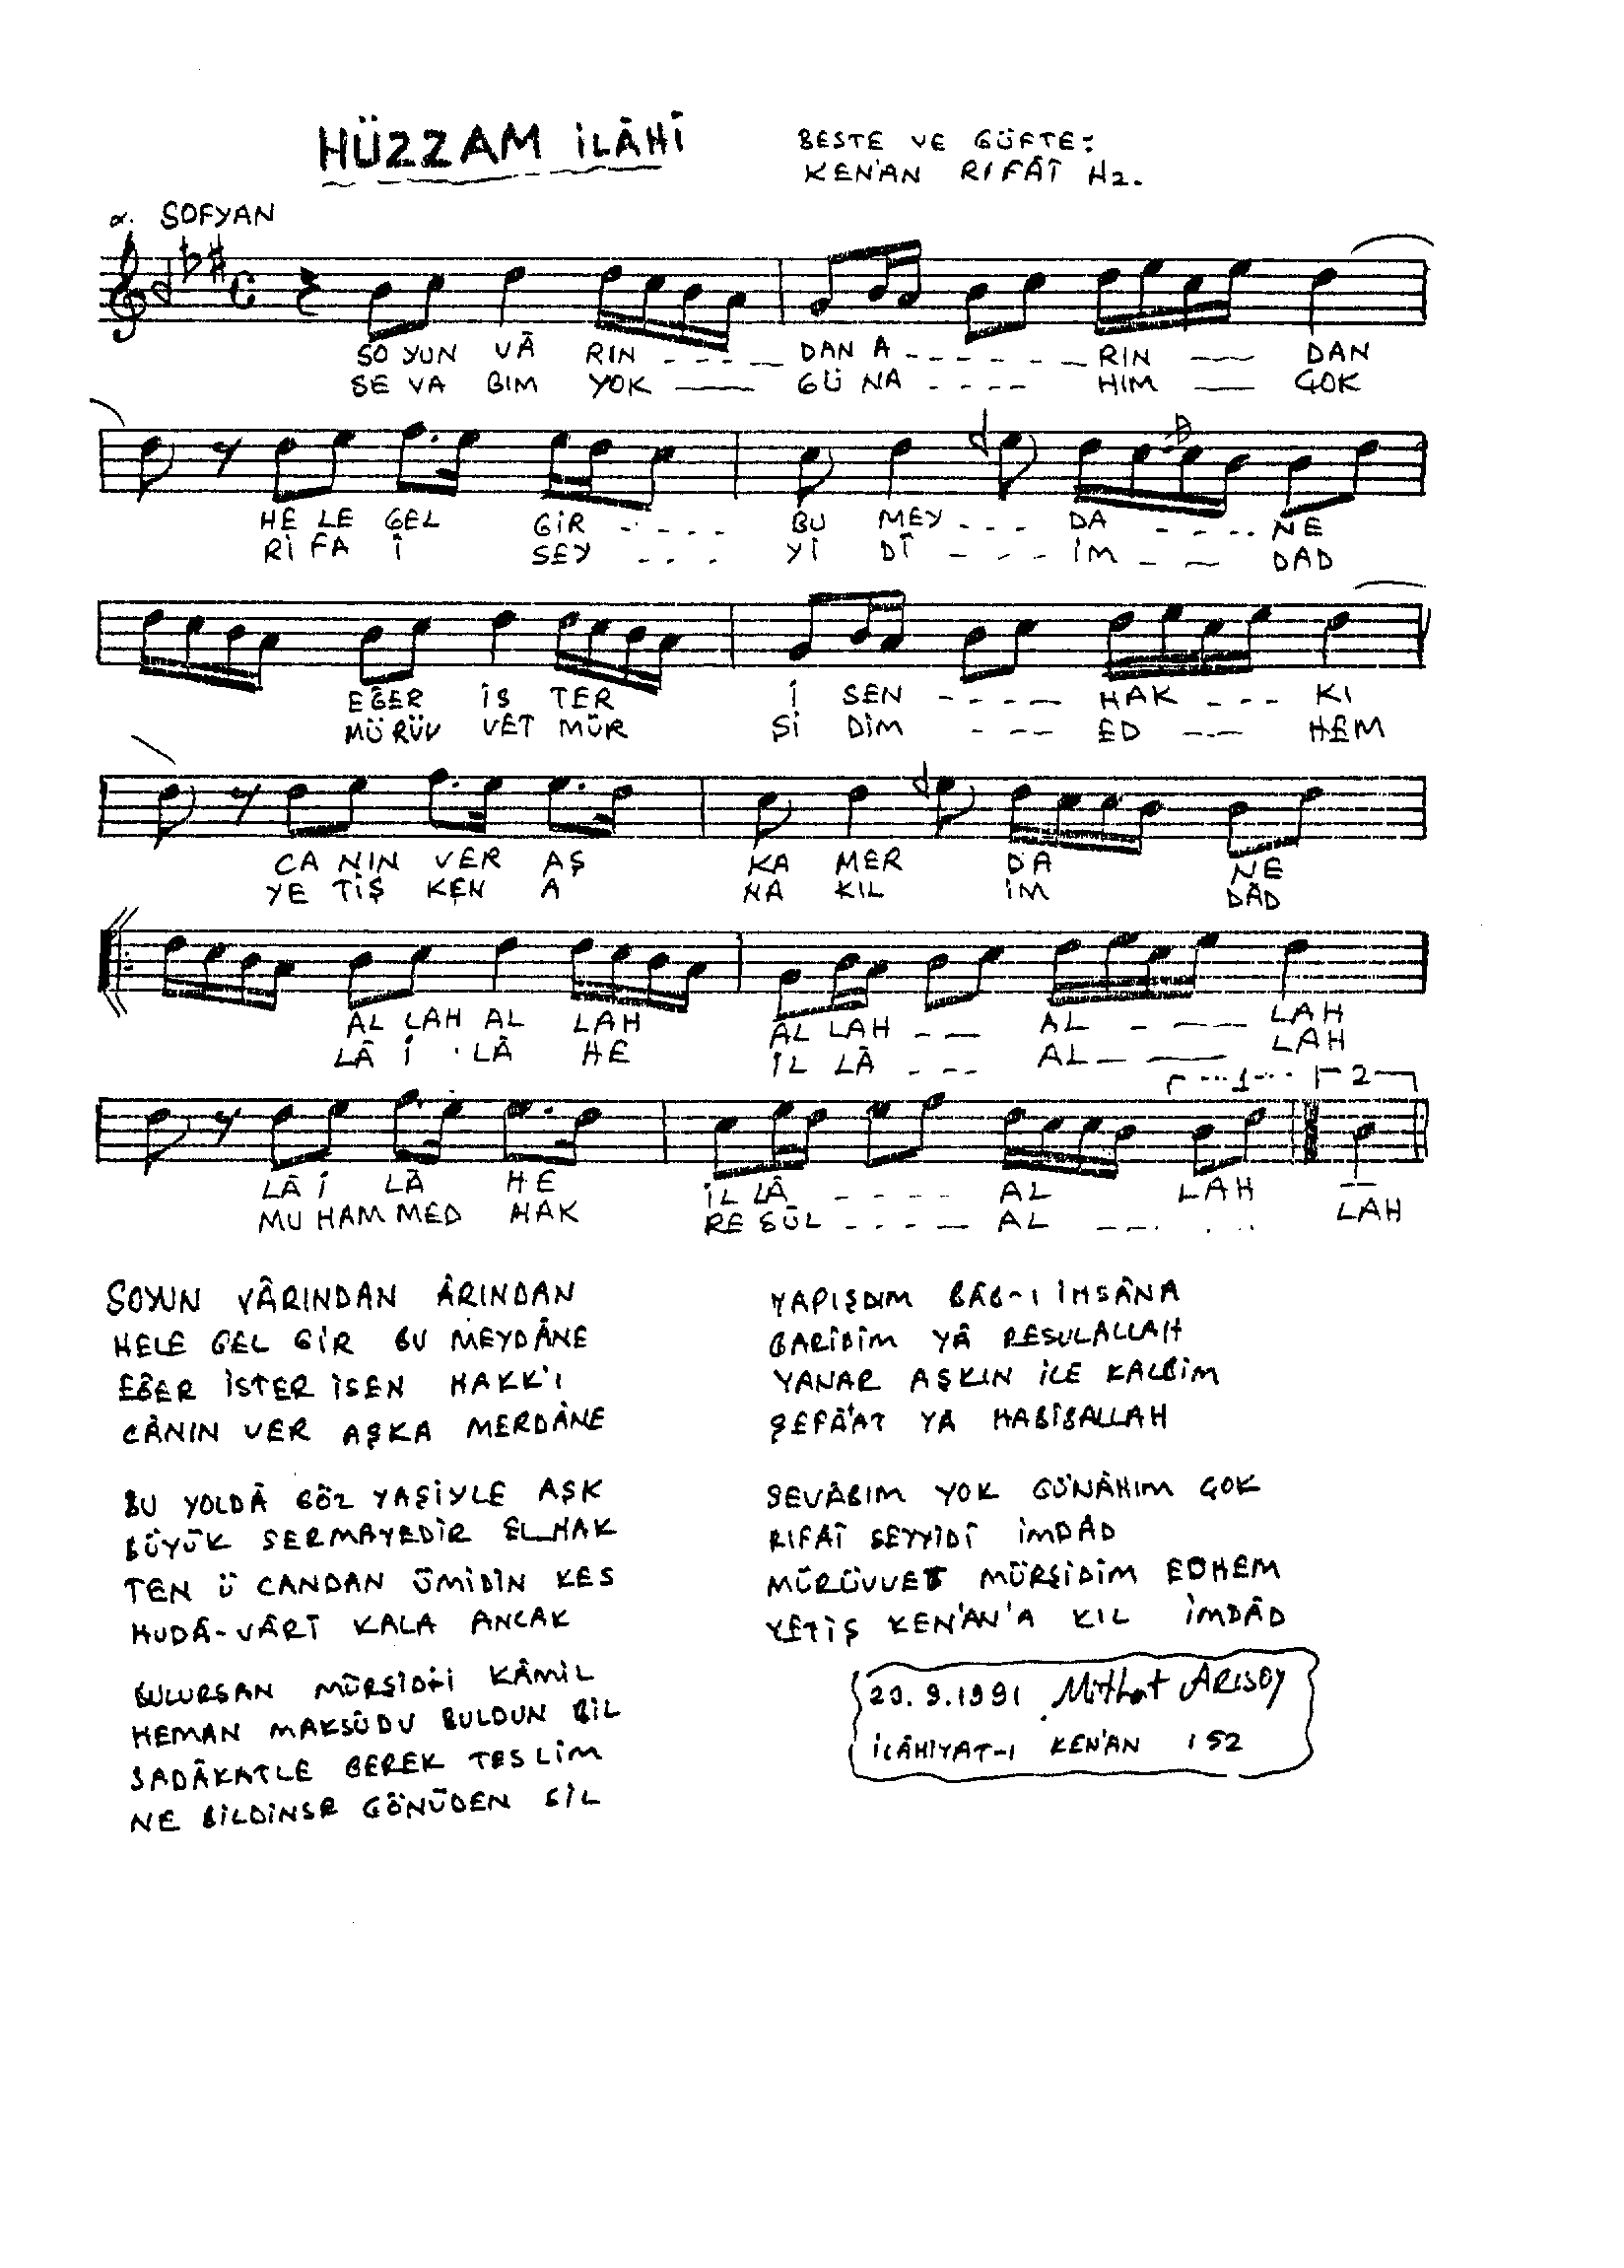 HÜZZAM İLÂHÎ
BESTE VE GÜFTE:
KEN'AN RIFÂÎ Hz.
SOFYAN
SO YUN VÂ RIN - - - - — DAN A - - - - - - — RIN — DAN
SE VA BIM YOK — GÜ NA - - - - HIM — ÇOK
HE LE GEL GİR - - - - - BU MEY - - - DA - - - - NE
RİFA Î SEY - - - Yİ DÎ - - - - İM - - — DAD
EĞER İS TER İ SEN - - - - — HAK - - - - KI
MÜRÜV VET MÜR Şİ DİM - - - — ED — - — HEM
CA NIN VER AŞ KA MER DA NE
YE TİŞ KEN A NA KIL İM DÂD
AL LAH AL LAH AL LAH - - — AL - - — — LAH
LÂ İ LÂ HE İL LÂ - - - - AL — — LAH
1 2
LÂ İ LÂ HE İL LÂ - - - - - AL LAH —
MU HAM MED HAK RE SÛL - - - - — AL — - . . . LAH
SOYUN VÂRINDAN ÂRINDAN
HELE GEL GİR BU MEYDÂNE
EĞER İSTER İSEN HAKK'I
CÂNIN VER AŞKA MERDÂNE
BU YOLDÂ GÖZ YAŞİYLE AŞK
BÜYÜK SERMAYEDİR ELHAK
TEN Ü CANDAN ÜMİDİN KES
HUDÂ-VÂRÎ KALA ANCAK
BULURSAN MÜRŞİD-İ KÂMİL
HEMAN MAKSÛDU BULDUN BİL
SADÂKATLE GEREK TESLİM
NE BİLDİNSE GÖNÜDEN SİL
YAPIŞDIM BÂB-I İHSÂNA
GARİBİM YÂ RESULALLAH
YANAR AŞKIN İLE KALBİM
ŞEFÂ'AT YÂ HABÎBALLAH
SEVÂBIM YOK GÜNÂHIM ÇOK
RIFAÎ SEYYİDÎ İMDÂD
MÜRÜVVET MÜRŞİDİM EDHEM
YETİŞ KEN'AN'A KIL İMDÂD
23.9.1991 Mithat ARISOY
İLÂHİYAT-I KEN'AN 152